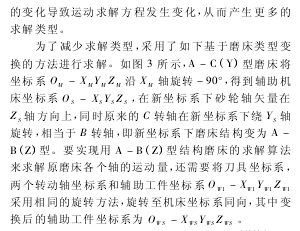 的变化导致运动求解方程发生变化,从而产生更多的
求解类型。
为了减少求解类型,采用了如下基于磨床类型变
换的方法进行求解。如图 3 所示,A-C(Y)型磨床将
坐标系 O_M-X_MY_MZ_M 沿 X_M 轴旋转-90°,得到辅助机
床坐标系 O_S-X_SY_SZ_S,在新坐标系下砂轮轴矢量在
Z_S轴方向上,同时原来的 C 转轴在新坐标系下绕 Y_S轴
旋转,相当于 B 转轴,即新坐标系下磨床结构变为 A-
B(Z)型。要实现用 A-B(Z)型结构磨床的求解算法
来求解原磨床各个轴的运动量,还需要将刀具坐标系,
两个转动轴坐标系和辅助工件坐标系 O_W1-X_W1Y_W1Z_W1
采用相同的旋转方法,旋转至机床坐标系同向,其中变
换后的辅助工件坐标系为 O_WS-X_WSY_WSZ_WS。